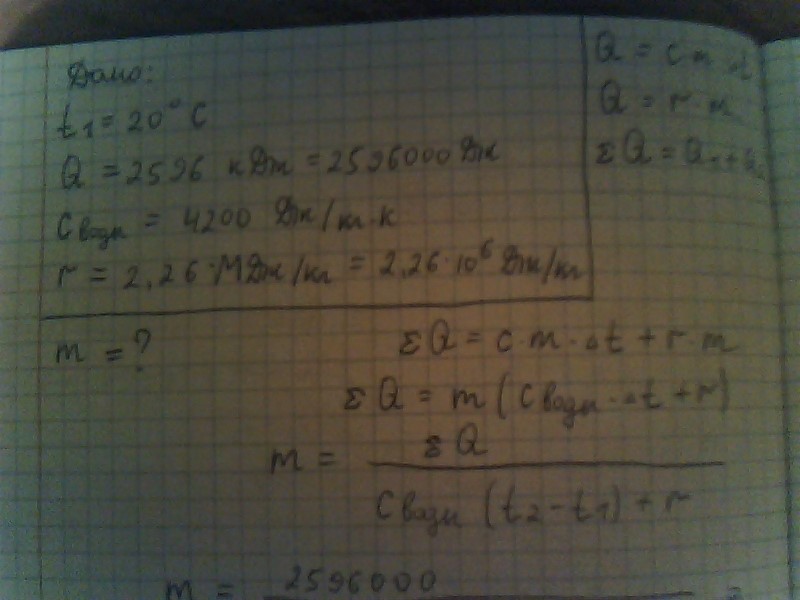 Дано:
t1 = 20° C
Q = 2596 кДж = 2596000 Дж
Cводы = 4200 Дж/кг·К
r = 2,26·МДж/кг = 2,26·10⁶ Дж/кг
m = ?
Q = c·m·Δt
Q = r·m
ΣQ = Q
ΣQ = c·m·Δt + r·m
ΣQ = m(Cводы·Δt + r)
m = ΣQ
Cводы (t2 - t1) + r
m = 2596000